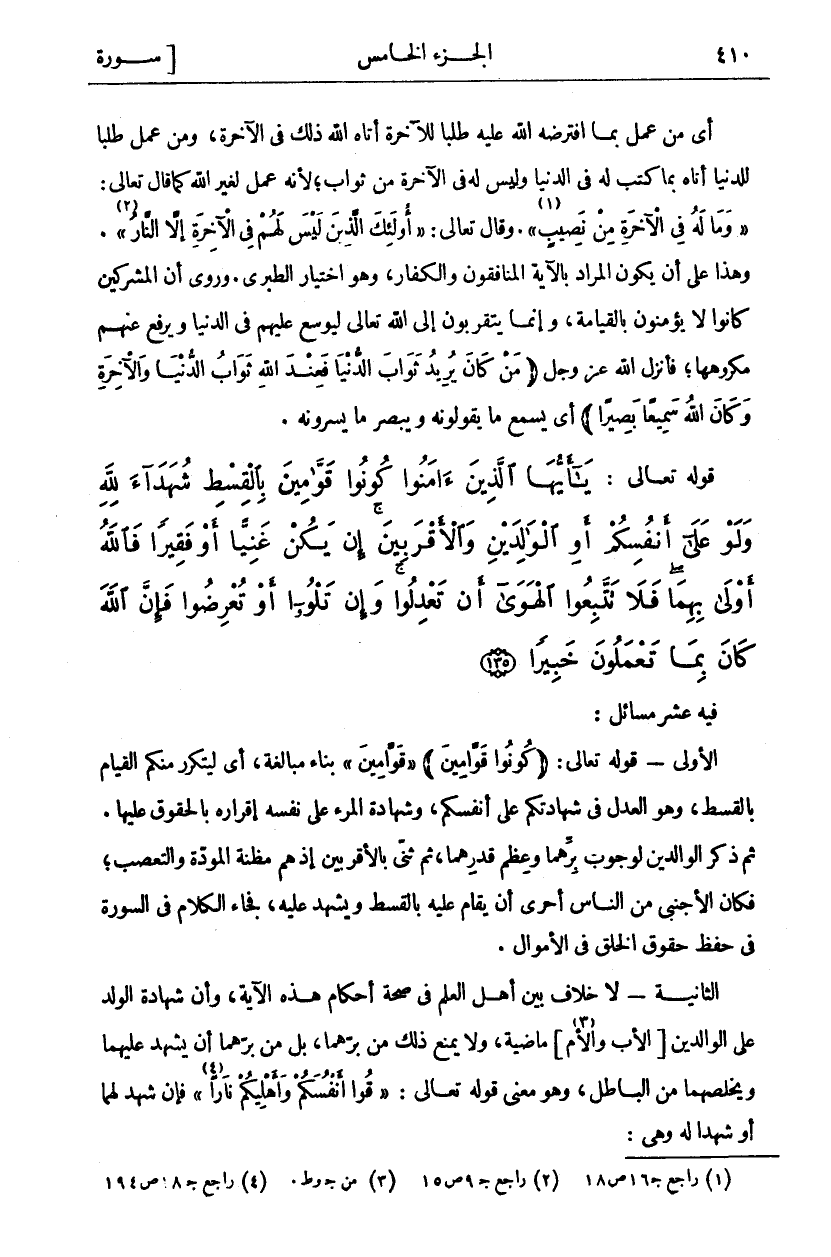 ٤١٠ الجزء الخامس [ سورة
أى من عمل بما افترضه الله عليه طلبا للآخرة أتاه الله ذلك فى الآخرة، ومن عمل طلبا
للدنيا أتاه بما كتب له فى الدنيا وليس له فى الآخرة من ثواب؛ لأنه عمل لغير الله كما قال تعالى:
« وَمَا لَهُ فِى الْآخِرَةِ مِنْ نَصِيبٍ(١) ». وقال تعالى: « أُولَئِكَ الَّذِينَ لَيْسَ لَهُمْ فِى الْآخِرَةِ إِلَّا النَّارُ(٢) » .
وهذا على أن يكون المراد بالآية المنافقون والكفار، وهو اختيار الطبرى. وروى أن المشركين
كانوا لا يؤمنون بالقيامة، وإنما يتقربون إلى الله تعالى ليوسع عليهم فى الدنيا ويرفع عنهم
مكروهها؛ فأنزل الله عز وجل ﴿ مَنْ كَانَ يُرِيدُ ثَوَابَ الدُّنْيَا فَعِنْدَ اللهِ ثَوَابُ الدُّنْيَا وَالْآخِرَةِ
وَكَانَ اللهُ سَمِيعًا بَصِيرًا ﴾ أى يسمع ما يقولونه ويبصر ما يسرونه .
قوله تعالى : يَـٰٓأَيُّهَا ٱلَّذِينَ ءَامَنُوا كُونُوا قَوَّٰمِينَ بِٱلْقِسْطِ شُهَدَآءَ لِلَّهِ
وَلَوْ عَلَىٰٓ أَنفُسِكُمْ أَوِ ٱلْوَٰلِدَيْنِ وَٱلْأَقْرَبِينَ ۚ إِن يَكُنْ غَنِيًّا أَوْ فَقِيرًا فَٱللَّهُ
أَوْلَىٰ بِهِمَا ۖ فَلَا تَتَّبِعُوا ٱلْهَوَىٰٓ أَن تَعْدِلُوا ۚ وَإِن تَلْوُۥٓا أَوْ تُعْرِضُوا فَإِنَّ ٱللَّهَ
كَانَ بِمَا تَعْمَلُونَ خَبِيرًا ١٣٥
فيه عشر مسائل :
الأولى — قوله تعالى: ﴿ كُونُوا قَوَّامِينَ ﴾ « قَوَّامِينَ » بناء مبالغة، أى ليتكرر منكم القيام
بالقسط، وهو العدل فى شهادتكم على أنفسكم، وشهادة المرء على نفسه إقراره بالحقوق عليها.
ثم ذكر الوالدين لوجوب بِرِّهما وعِظم قدرِهما، ثم ثنّى بالأقربين إذ هم مظنة المودّة والتعصب؛
فكان الأجنبى من الناس أحرى أن يقام عليه بالقسط ويشهد عليه، فجاء الكلام فى السورة
فى حفظ حقوق الخلق فى الأموال .
الثانية — لا خلاف بين أهل العلم فى صحة أحكام هذه الآية، وأن شهادة الولد
على الوالدين [ الأب والأم(٣) ] ماضية، ولا يمنع ذلك من برّهما، بل من برّهما أن يشهد عليهما
ويخلصهما من الباطل، وهو معنى قوله تعالى : « قُوا أَنْفُسَكُمْ وَأَهْلِيكُمْ نَارًا(٤) » فإن شهد لهما
أو شهدا له وهى :
(١) راجع جـ ١٦ ص ١٨ (٢) راجع جـ ٩ ص ١٥ (٣) من جـ و ط . (٤) راجع جـ ١٨ ص ١٩٤